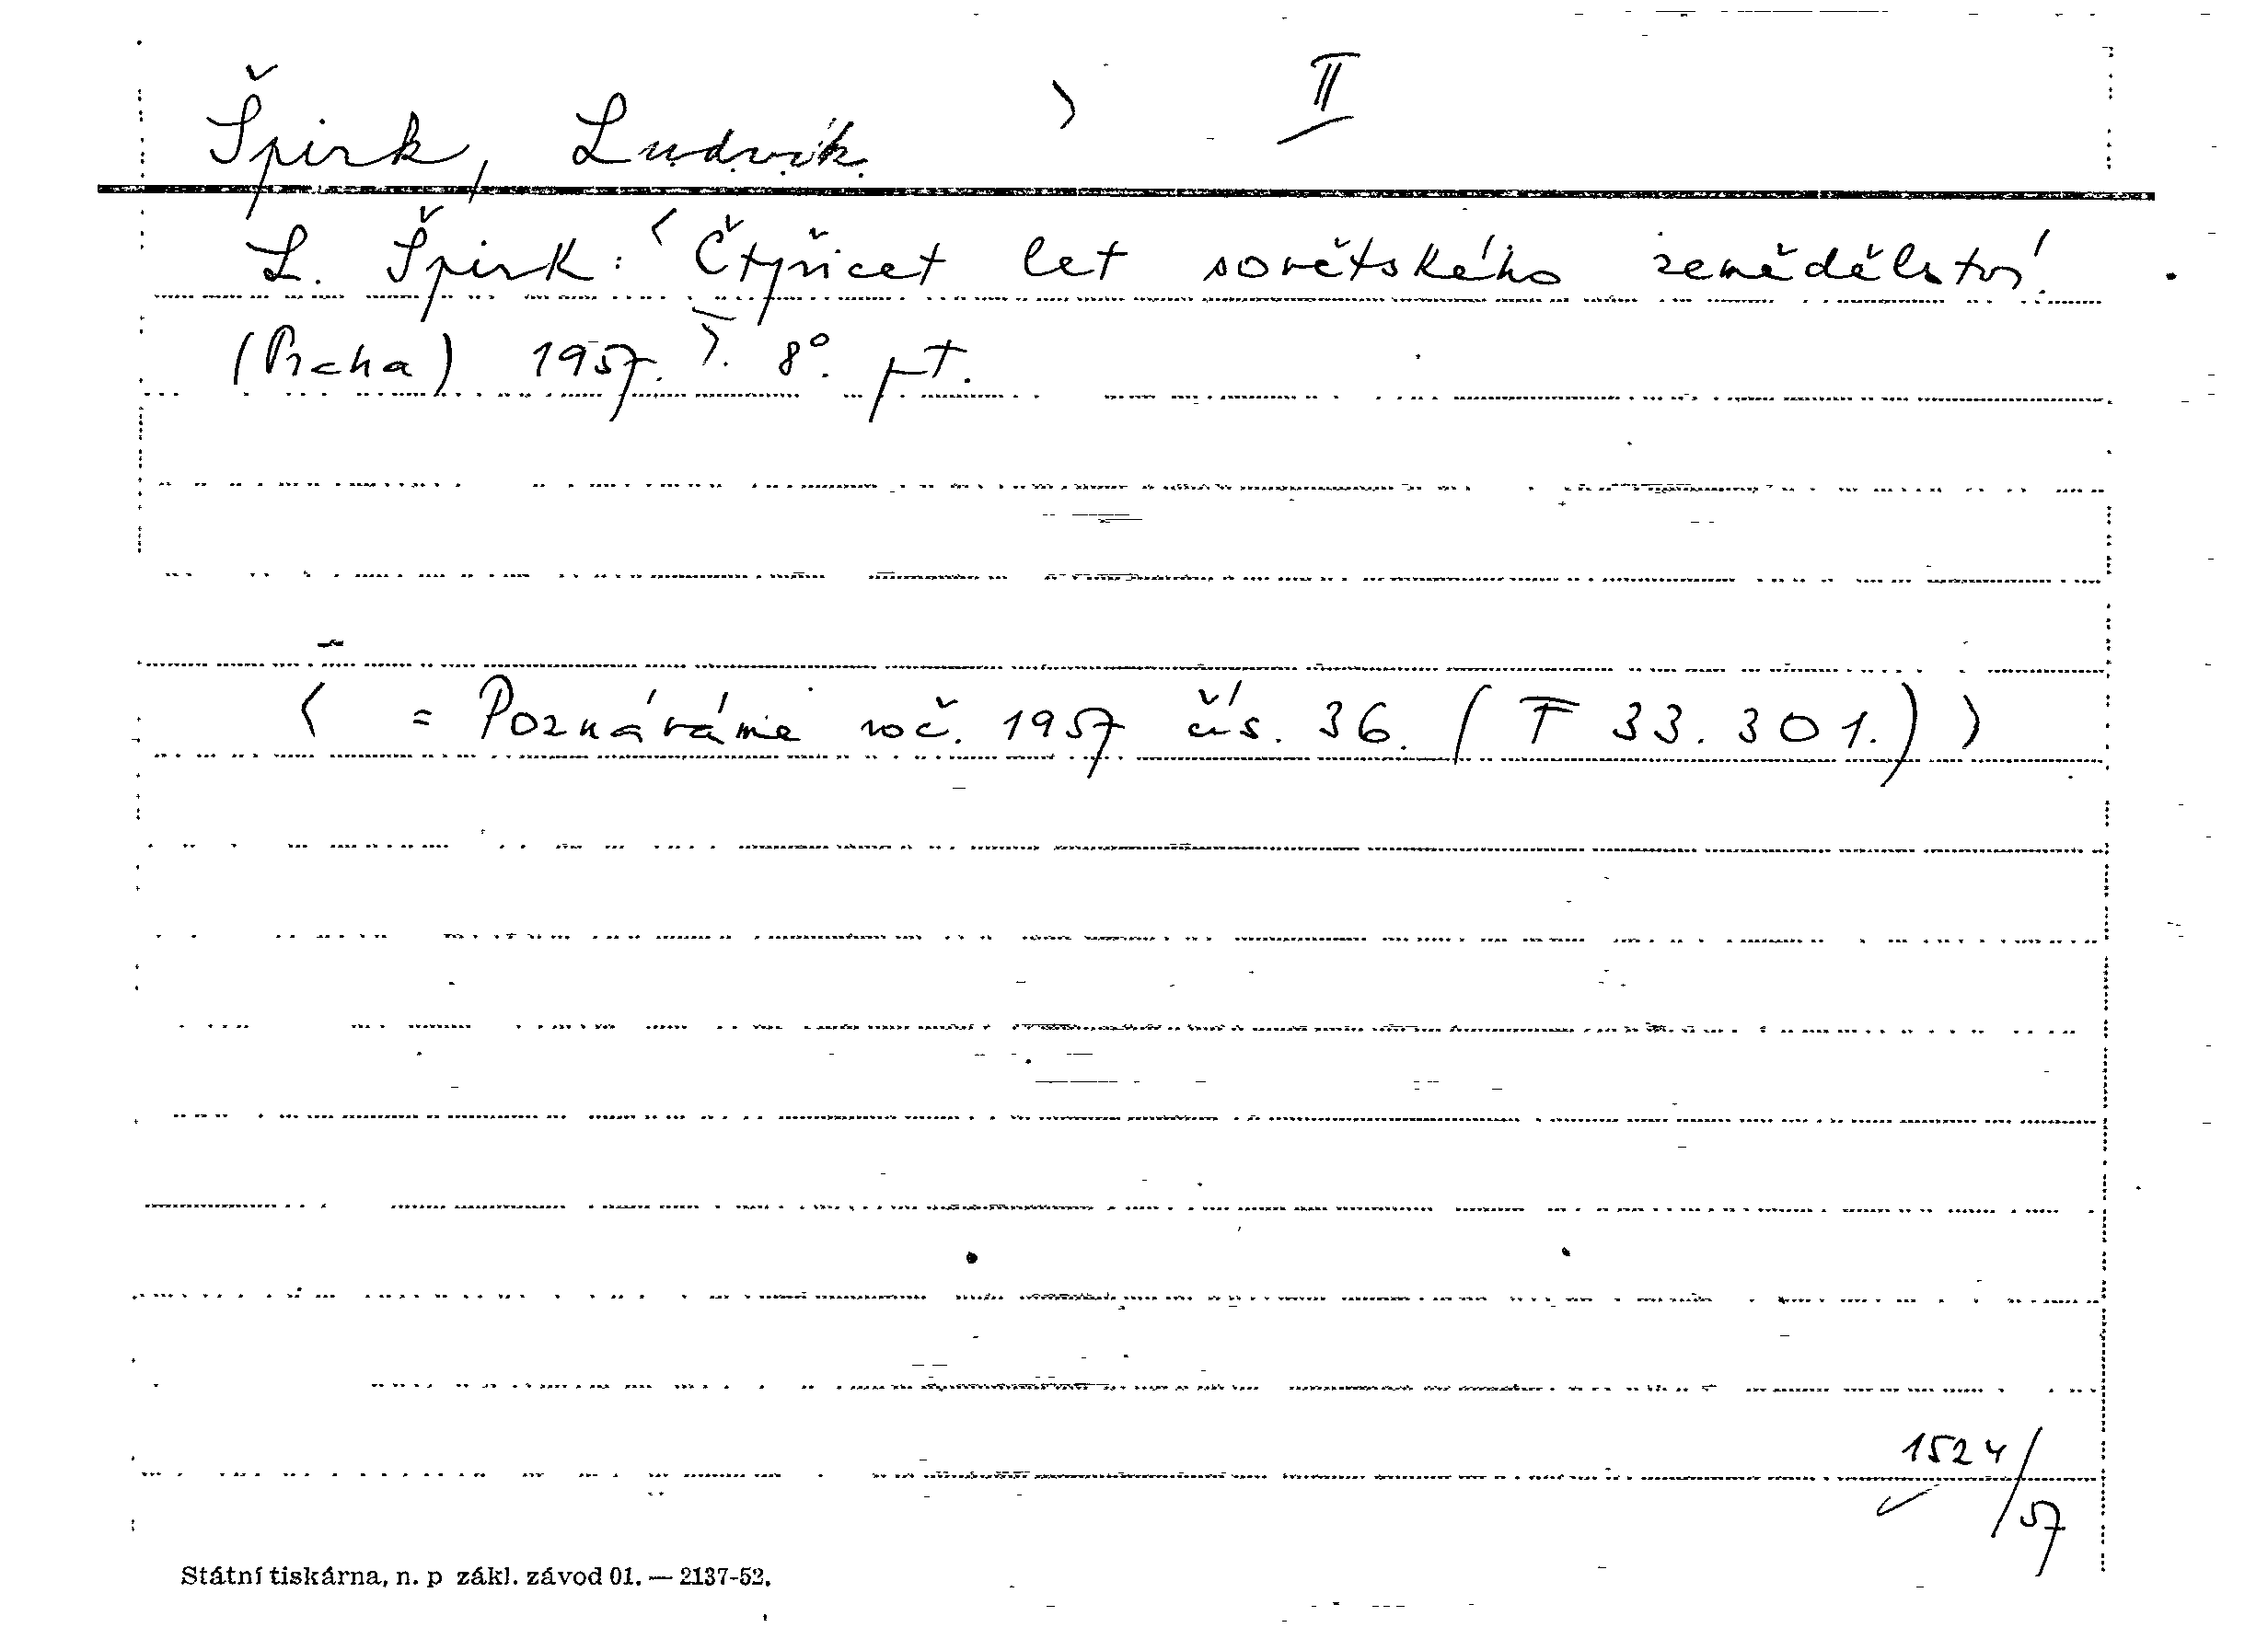 Špirk, Ludvík. ⟩ II
L. Špirk: ⟨ Čtyřicet let sovětského zemědělství.
(Praha) 1957. ⟩. 8°. pt.
⟨ = Poznáváme roč. 1957 čís. 36. (F 33.301.) ⟩
1524/57
Státní tiskárna, n. p zákl. závod 01. — 2137-52.